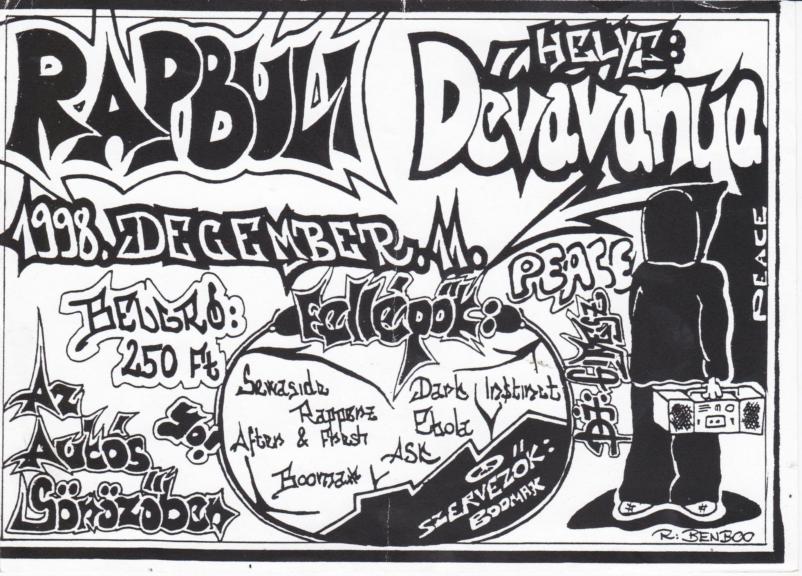 RAPBULI
HELYE:
Dévaványa
1998. DECEMBER. 11.
PEACE
PEACE
BELÉPŐ:
250 Ft
Fellépők:
Sewaside
Rapperz
After & Fresh
Boomax
Dark In$tinct
Ebola
ASK
YO!
Az
Autós
Sörözőben
SZERVEZŐK:
BOOMAX
R: BENBOO